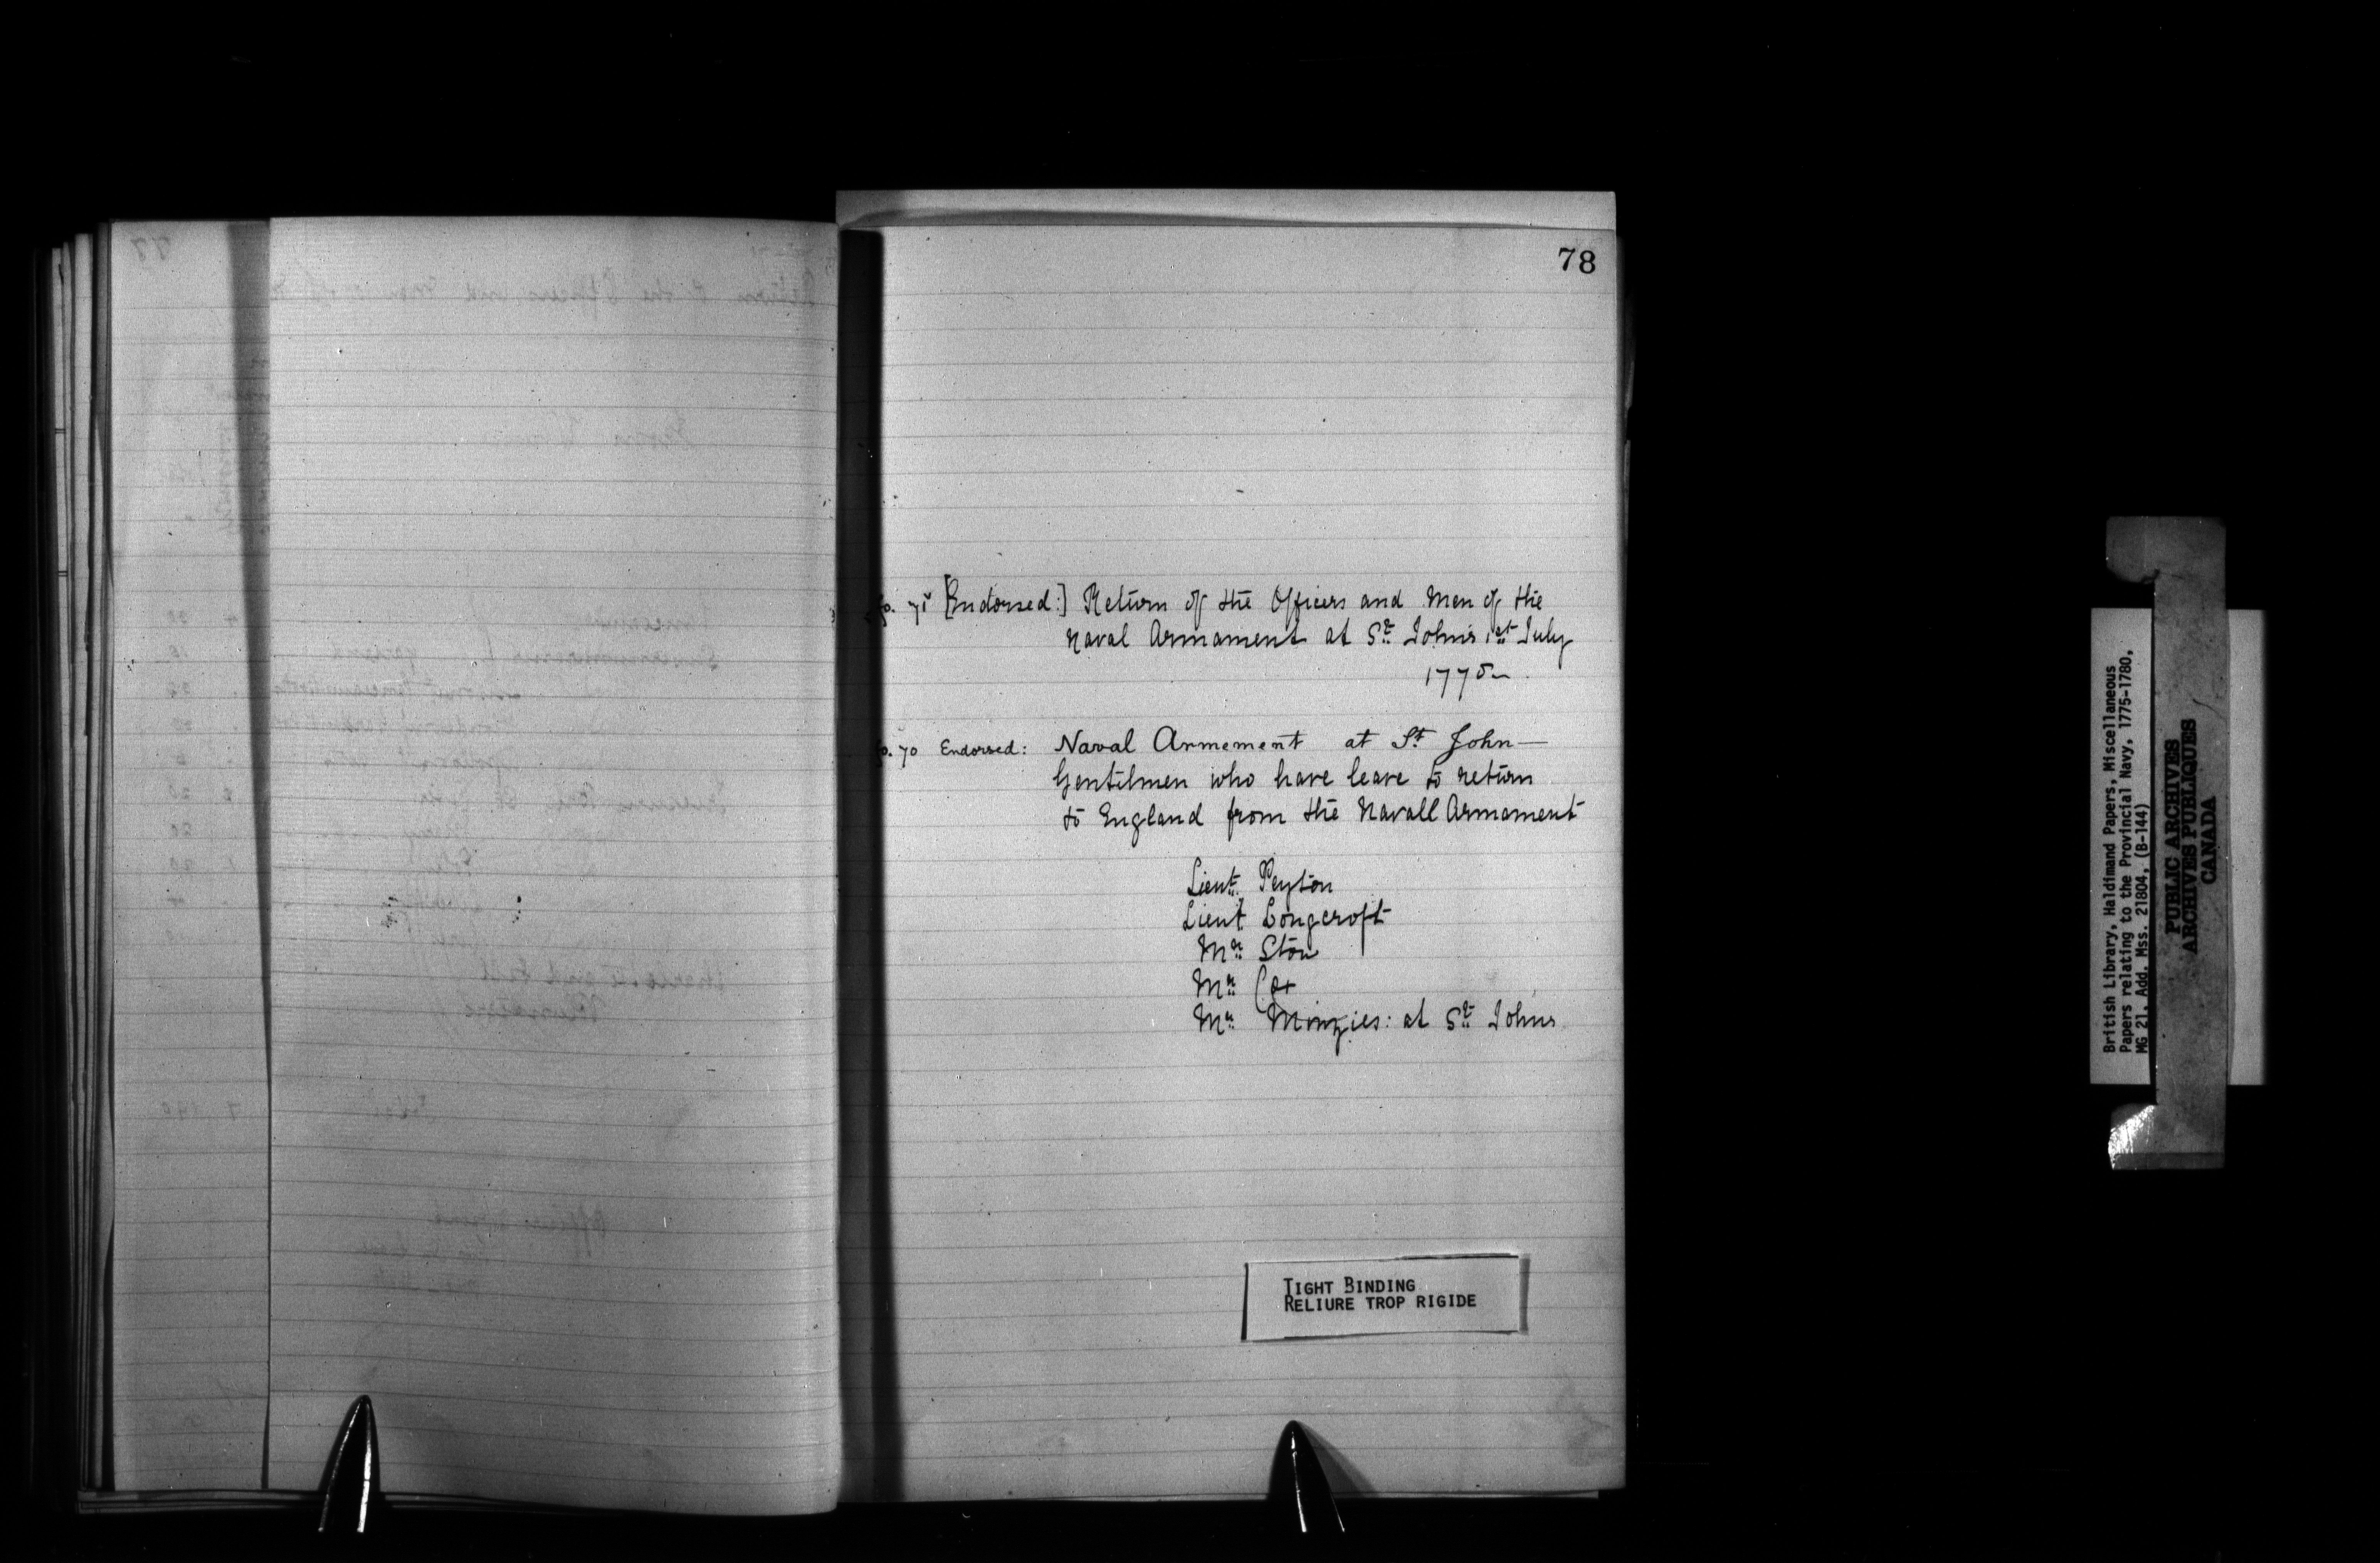 78
fo. 71 [Endorsed:] Return of the Officers and Men of the
Naval Armament at St. Johns 1st July
1775
fo. 70 Endorsed: Naval Armement at St. John—
Gentilmen who have leave to return
to England from the Navall Armament
Lieut. Peyton
Lieut. Longcroft
Mr. Stow
Mr. Cox
Mr. Minzies: at St. Johns
TIGHT BINDING
RELIURE TROP RIGIDE
British Library, Haldimand Papers, Miscellaneous
Papers relating to the Provincial Navy, 1775-1780,
MG 21, Add. Mss. 21804, (B-144)
PUBLIC ARCHIVES
ARCHIVES PUBLIQUES
CANADA